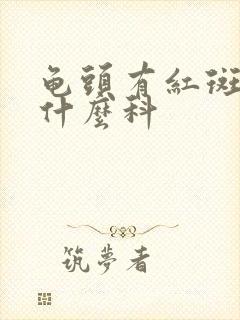 龟頭有紅斑
什麼科
筑夢者